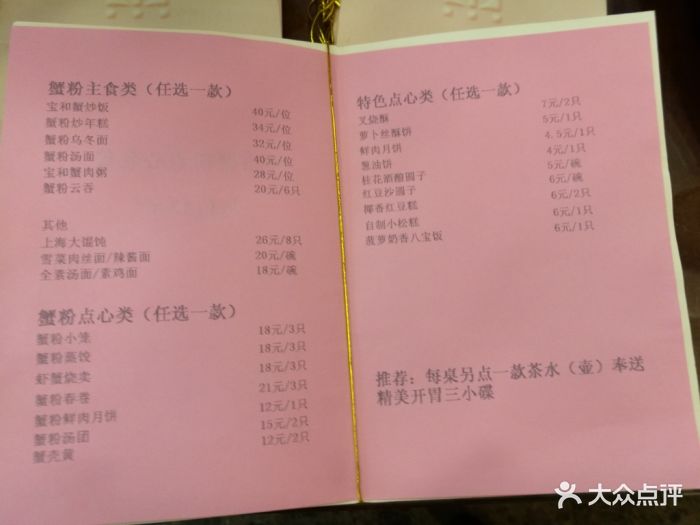 蟹粉主食类（任选一款）
宝和蟹炒饭 40元/位
蟹粉炒年糕 34元/位
蟹粉乌冬面 32元/位
蟹粉汤面 40元/位
宝和蟹肉粥 28元/位
蟹粉云吞 20元/6只
其他
上海大馄饨 26元/8只
雪菜肉丝面/辣酱面 20元/碗
全素汤面/素鸡面 18元/碗
蟹粉点心类（任选一款）
蟹粉小笼 18元/3只
蟹粉蒸饺 18元/3只
虾蟹烧卖 18元/3只
蟹粉春卷 21元/3只
蟹粉鲜肉月饼 12元/1只
蟹粉汤团 15元/2只
蟹壳黄 12元/2只
特色点心类（任选一款）
叉烧酥 7元/2只
萝卜丝酥饼 5元/1只
鲜肉月饼 4.5元/1只
葱油饼 4元/1只
桂花酒酿圆子 5元/碗
红豆沙圆子 6元/碗
椰香红豆糕 6元/2只
自制小松糕 6元/1只
菠萝奶香八宝饭 6元/1只
推荐：每桌另点一款茶水（壶）奉送
精美开胃三小碟
大众点评